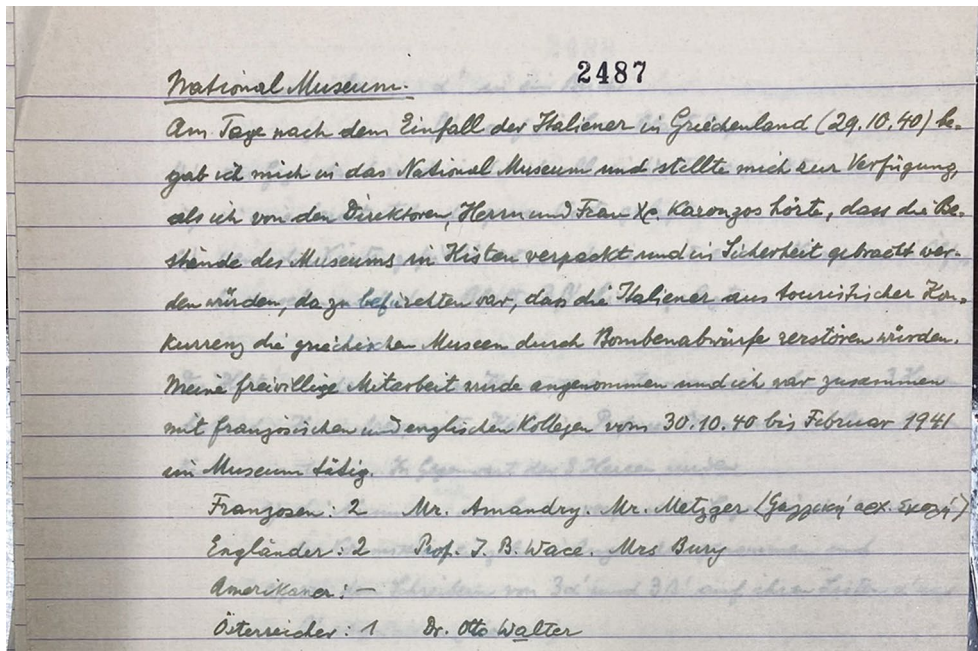 2487
National Museum.
Am Tage nach dem Einfall der Italiener in Griechenland (29.10.40) be-
gab ich mich in das National Museum und stellte mich zur Verfügung,
als ich von den Direktoren, Herrn und Frau Χρ. Karouzos hörte, dass die Be-
stände des Museums in Kisten verpackt und in Sicherheit gebracht wer-
den würden, da zu befürchten war, dass die Italiener aus touristischer Kon-
kurrenz die griechischen Museen durch Bombenabwürfe zerstören würden.
Meine freiwillige Mitarbeit wurde angenommen und ich war zusammen
mit französischen und englischen Kollegen vom 30.10.40 bis Februar 1941
im Museum tätig.
Franzosen: 2 Mr. Amandry. Mr. Metzger (Γαλλική αρχ. Σχολή)
Engländer: 2 Prof. J. B. Wace. Mrs Bury
Amerikaner: -
Österreicher: 1 Dr. Otto Walter